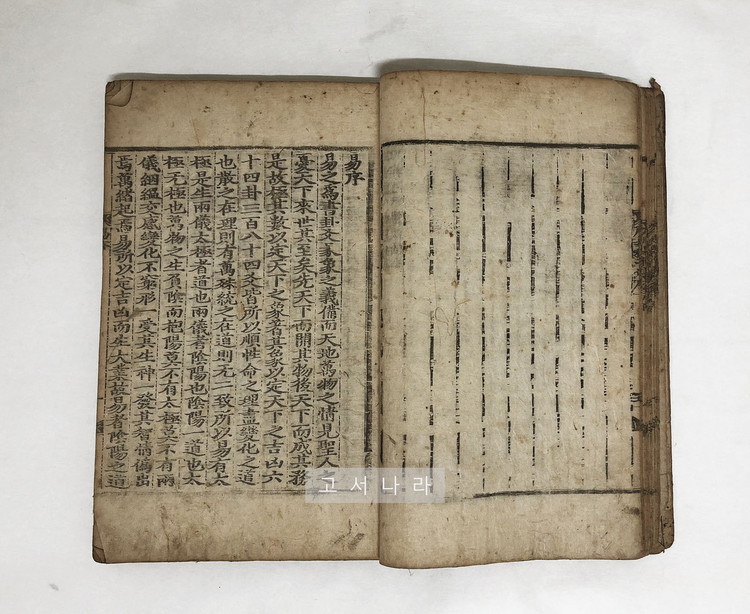 易序
易之爲書卦爻彖象之義備而天地萬物之情見聖人之
憂天下來世其至矣先天下而開其物後天下而成其務
是故極其數以定天下之象著其象以定天下之吉凶六
十四卦三百八十四爻皆所以順性命之理盡變化之道
也散之在理則有萬殊統之在道則无二致所以易有太
極是生兩儀太極者道也兩儀者陰陽也陰陽一道也太
極无極也萬物之生負陰而抱陽莫不有太極莫不有兩
儀絪縕交感變化不窮形一受其生神一發其智情僞出
焉萬緖起焉易所以定吉凶而生大業故易者陰陽之道
고서나라